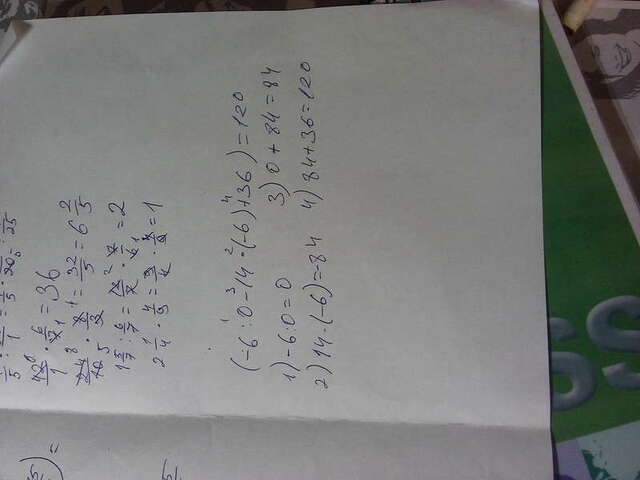 1/5 · /1 = 1/5 · /20 = /25
42/1 · 6/7 = 36
24/10 · 8/3 = 32/5 = 6 2/5
1 5/7 : 6/7 = 12/7 · 7/6 = 2
2 1/4 · 4/9 = 9/4 · 4/9 = 1
(-6 : 0 - 14 · (-6) + 36) = 120
1) -6 : 0 = 0
3) 0 + 84 = 84
2) 14 · (-6) = -84
4) 84 + 36 = 120